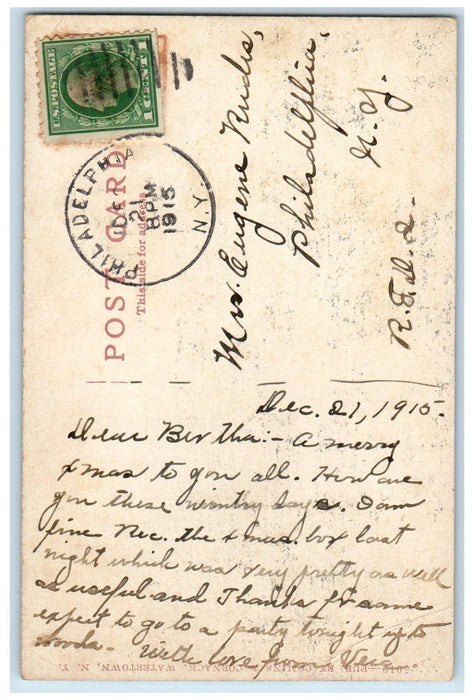 U.S. POSTAGE
1 CENT 1
PHILADELPHIA
DEC
21
8 PM
1915
N.Y.
POST CARD
This side for address.
Mrs. Eugene Rudes,
Philadelphia,
N.Y.
R.F.D.2.
Dec. 21, 1915.
Dear Bertha:- A merry
xmas to you all. How are
you these wintry days. I am
fine Rec. the xmas. box last
night which was very pretty as well
as useful and Thanks for same
expect to go to a party tonight up to
woods. With love from Vera
PUB. BY CORNACK, WATERTOWN, N. Y.